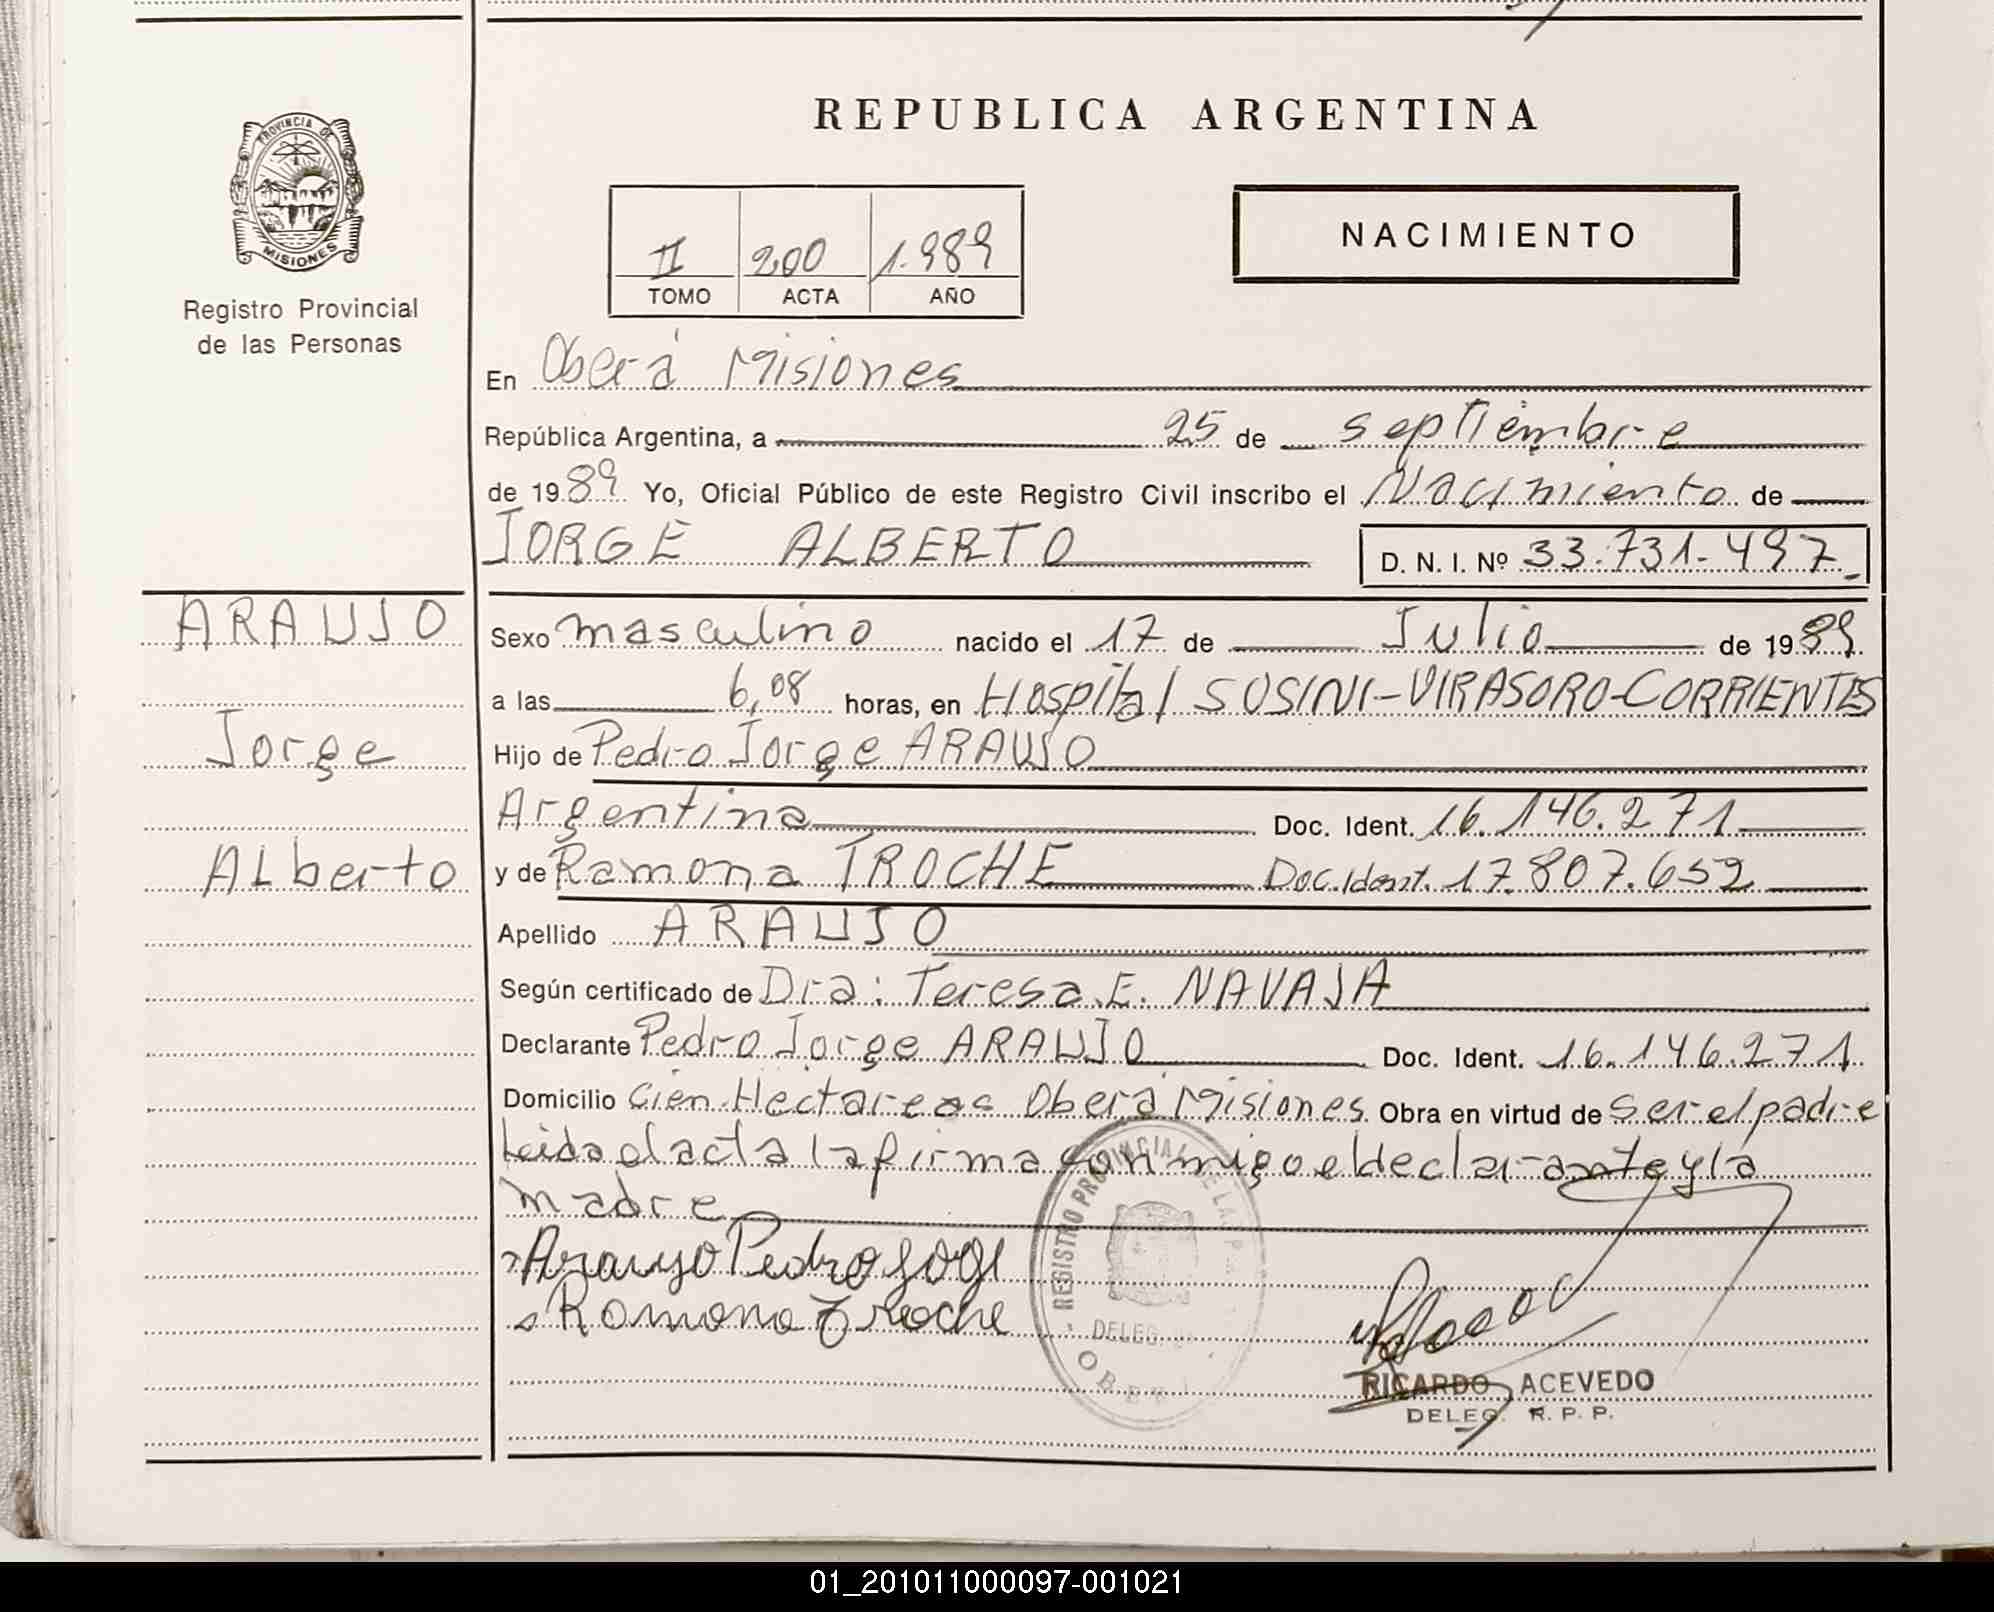 REPUBLICA ARGENTINA
PROVINCIA DE
MISIONES
Registro Provincial
de las Personas
II 200 1.989
TOMO ACTA AÑO
NACIMIENTO
En Oberá Misiones
República Argentina, a 25 de septiembre
de 1989 Yo, Oficial Público de este Registro Civil inscribo el Nacimiento de
JORGE ALBERTO D. N. I. Nº 33.731.497
ARAUJO
Jorge
Alberto
Sexo masculino nacido el 17 de Julio de 1989
a las 6,08 horas, en Hospital SOSINI-VIRASORO-CORRIENTES
Hijo de Pedro Jorge ARAUJO
Argentina Doc. Ident. 16.146.271
y de Ramona TROCHE Doc.Ident. 17.807.652
Apellido ARAUJO
Según certificado de Dra: Teresa.E. NAVAJA
Declarante Pedro Jorge ARAUJO Doc. Ident. 16.146.271
Domicilio Cien Hectareas Oberá Misiones Obra en virtud de ser el padre
Leida el acta la firma con migo el declarante y la
madre
Araujo Pedro Jorge
Ramona Troche
REGISTRO PROVINCIAL DE LAS P
DELEG.
OBERA
RICARDO ACEVEDO
DELEG. R. P. P.
01_201011000097-001021